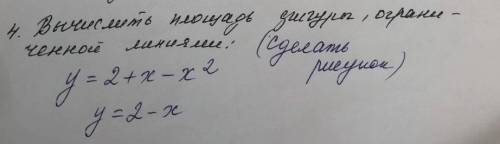 4. Вычислить площадь фигуры, ограни-
ченной линиями: (сделать
рисунок)
y = 2 + x - x²
y = 2 - x